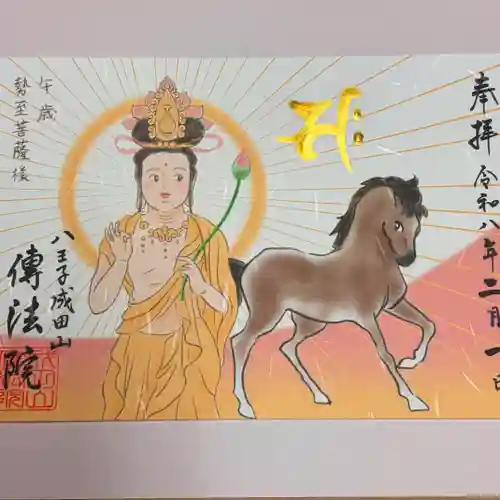 奉拝 令和八年二月一日
午歳
勢至菩薩様
八王子成田山
傳法院